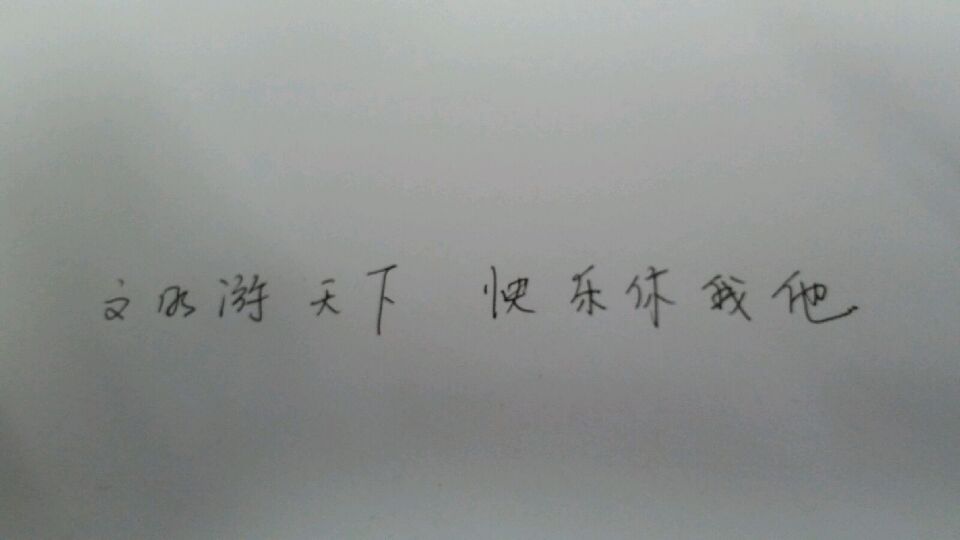 文明游天下 快乐你我他